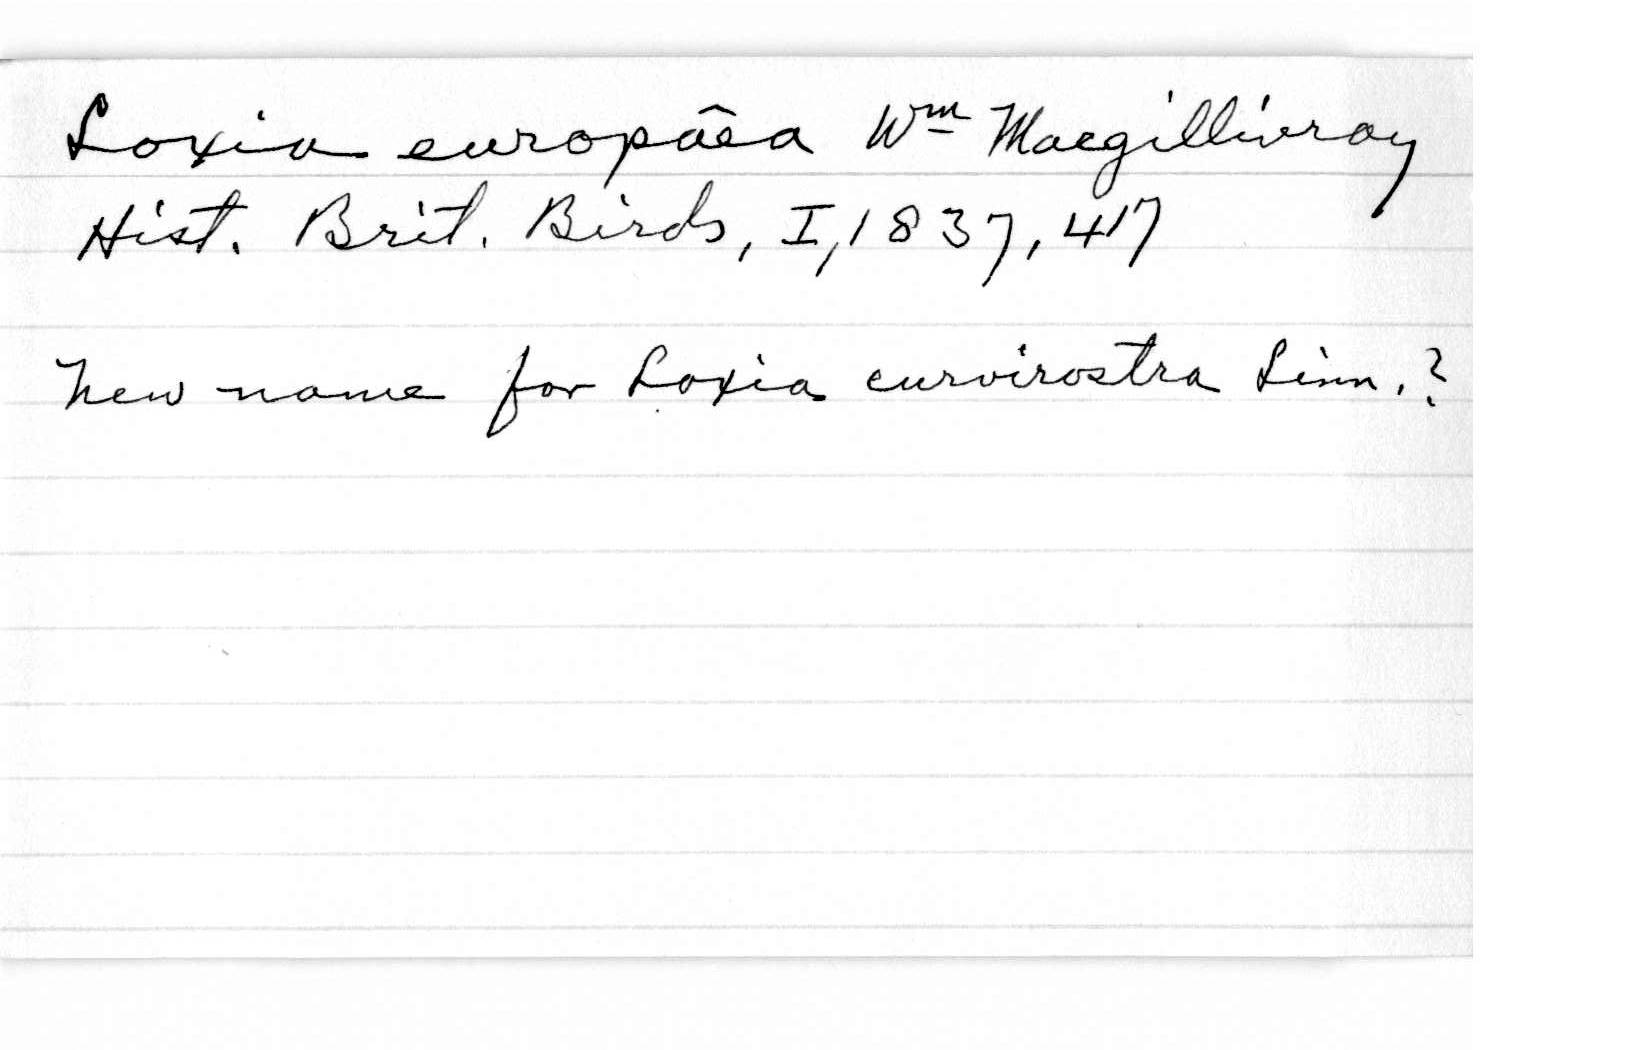 Loxia europâea Wm Macgillivray
Hist. Brit. Birds, I, 1837, 417
New name for Loxia curvirostra Linn.?